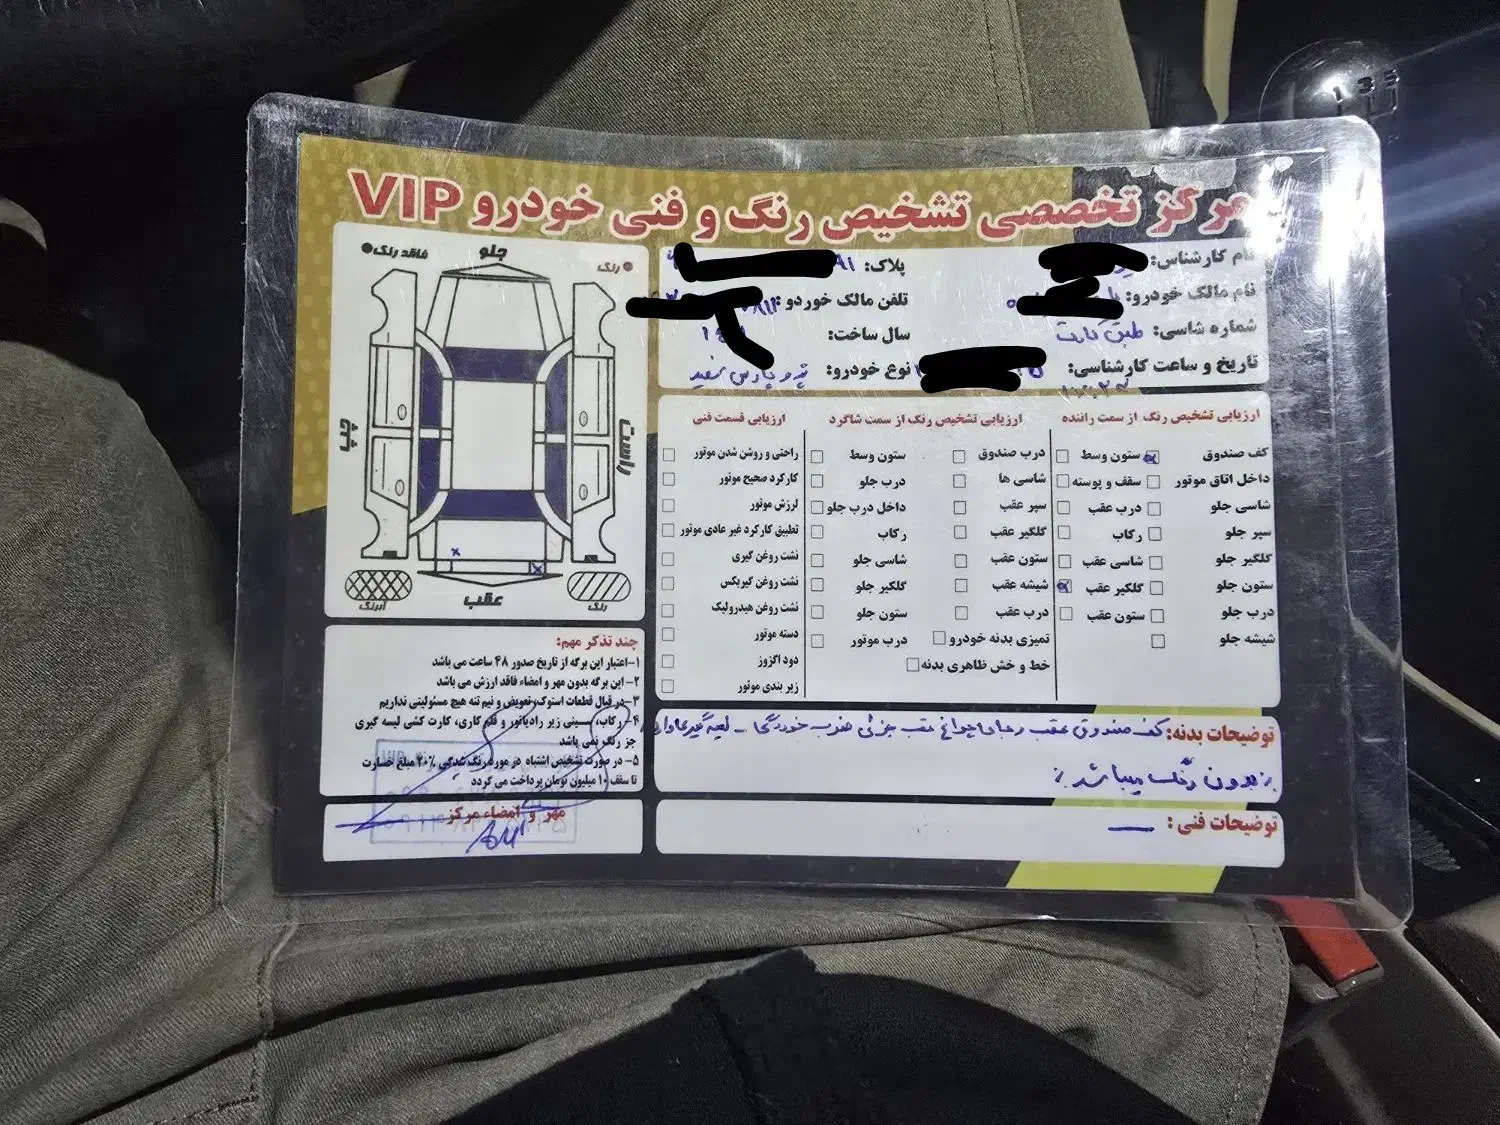 مرکز تخصصی تشخیص رنگ و فنی خودرو VIP
نام کارشناس:
پلاک: ۹۱
نام مالک خودرو:
تلفن مالک خوردو:
شماره شاسی: طبق کارت
سال ساخت:
تاریخ و ساعت کارشناسی:
نوع خودرو: پژو پارس سفید
رنگ
جلو
فاقد رنگ
چپ
راست
رنگ
عقب
آبرنگ
ارزیابی تشخیص رنگ از سمت راننده
ارزیابی تشخیص رنگ از سمت شاگرد
ارزیابی قسمت فنی
کف صندوق
داخل اتاق موتور
شاسی جلو
سپر جلو
گلگیر جلو
ستون جلو
درب جلو
شیشه جلو
ستون وسط
سقف و پوسته
درب عقب
رکاب
شاسی عقب
گلگیر عقب
ستون عقب
درب صندوق
شاسی ها
سپر عقب
گلگیر عقب
ستون عقب
شیشه عقب
درب عقب
تمیزی بدنه خودرو
خط و خش ظاهری بدنه
ستون وسط
درب جلو
داخل درب جلو
رکاب
شاسی جلو
گلگیر جلو
ستون جلو
درب موتور
راحتی و روشن شدن موتور
کارکرد صحیح موتور
لرزش موتور
تطبیق کارکرد غیر عادی موتور
نشت روغن گیری
نشت روغن گیربکس
نشت روغن هیدرولیک
دسته موتور
دود اگزوز
زیر بندی موتور
چند تذکر مهم:
۱-اعتبار این برگه از تاریخ صدور ۴۸ ساعت می باشد
۲- این برگه بدون مهر و امضاء فاقد ارزش می باشد
۳-در قبال قطعات استوک،تعویض و نیم تنه هیچ مسئولیتی نداریم
۴- رکاب، سینی زیر رادیاتور و قلم کاری، کارت کشی لیسه گیری
جز رنگ نمی باشد
۵- در صورت تشخیص اشتباه در مورد رنگ شدگی ۲۰٪ مبلغ خسارت
تا سقف ۱۰ میلیون تومان پرداخت می گردد
مهر و امضاء مرکز
توضیحات بدنه: کف صندوق عقب و جای چراغ عقب جزئی ضرب خوردگی - بقیه
بدون رنگ میباشد
توضیحات فنی: —